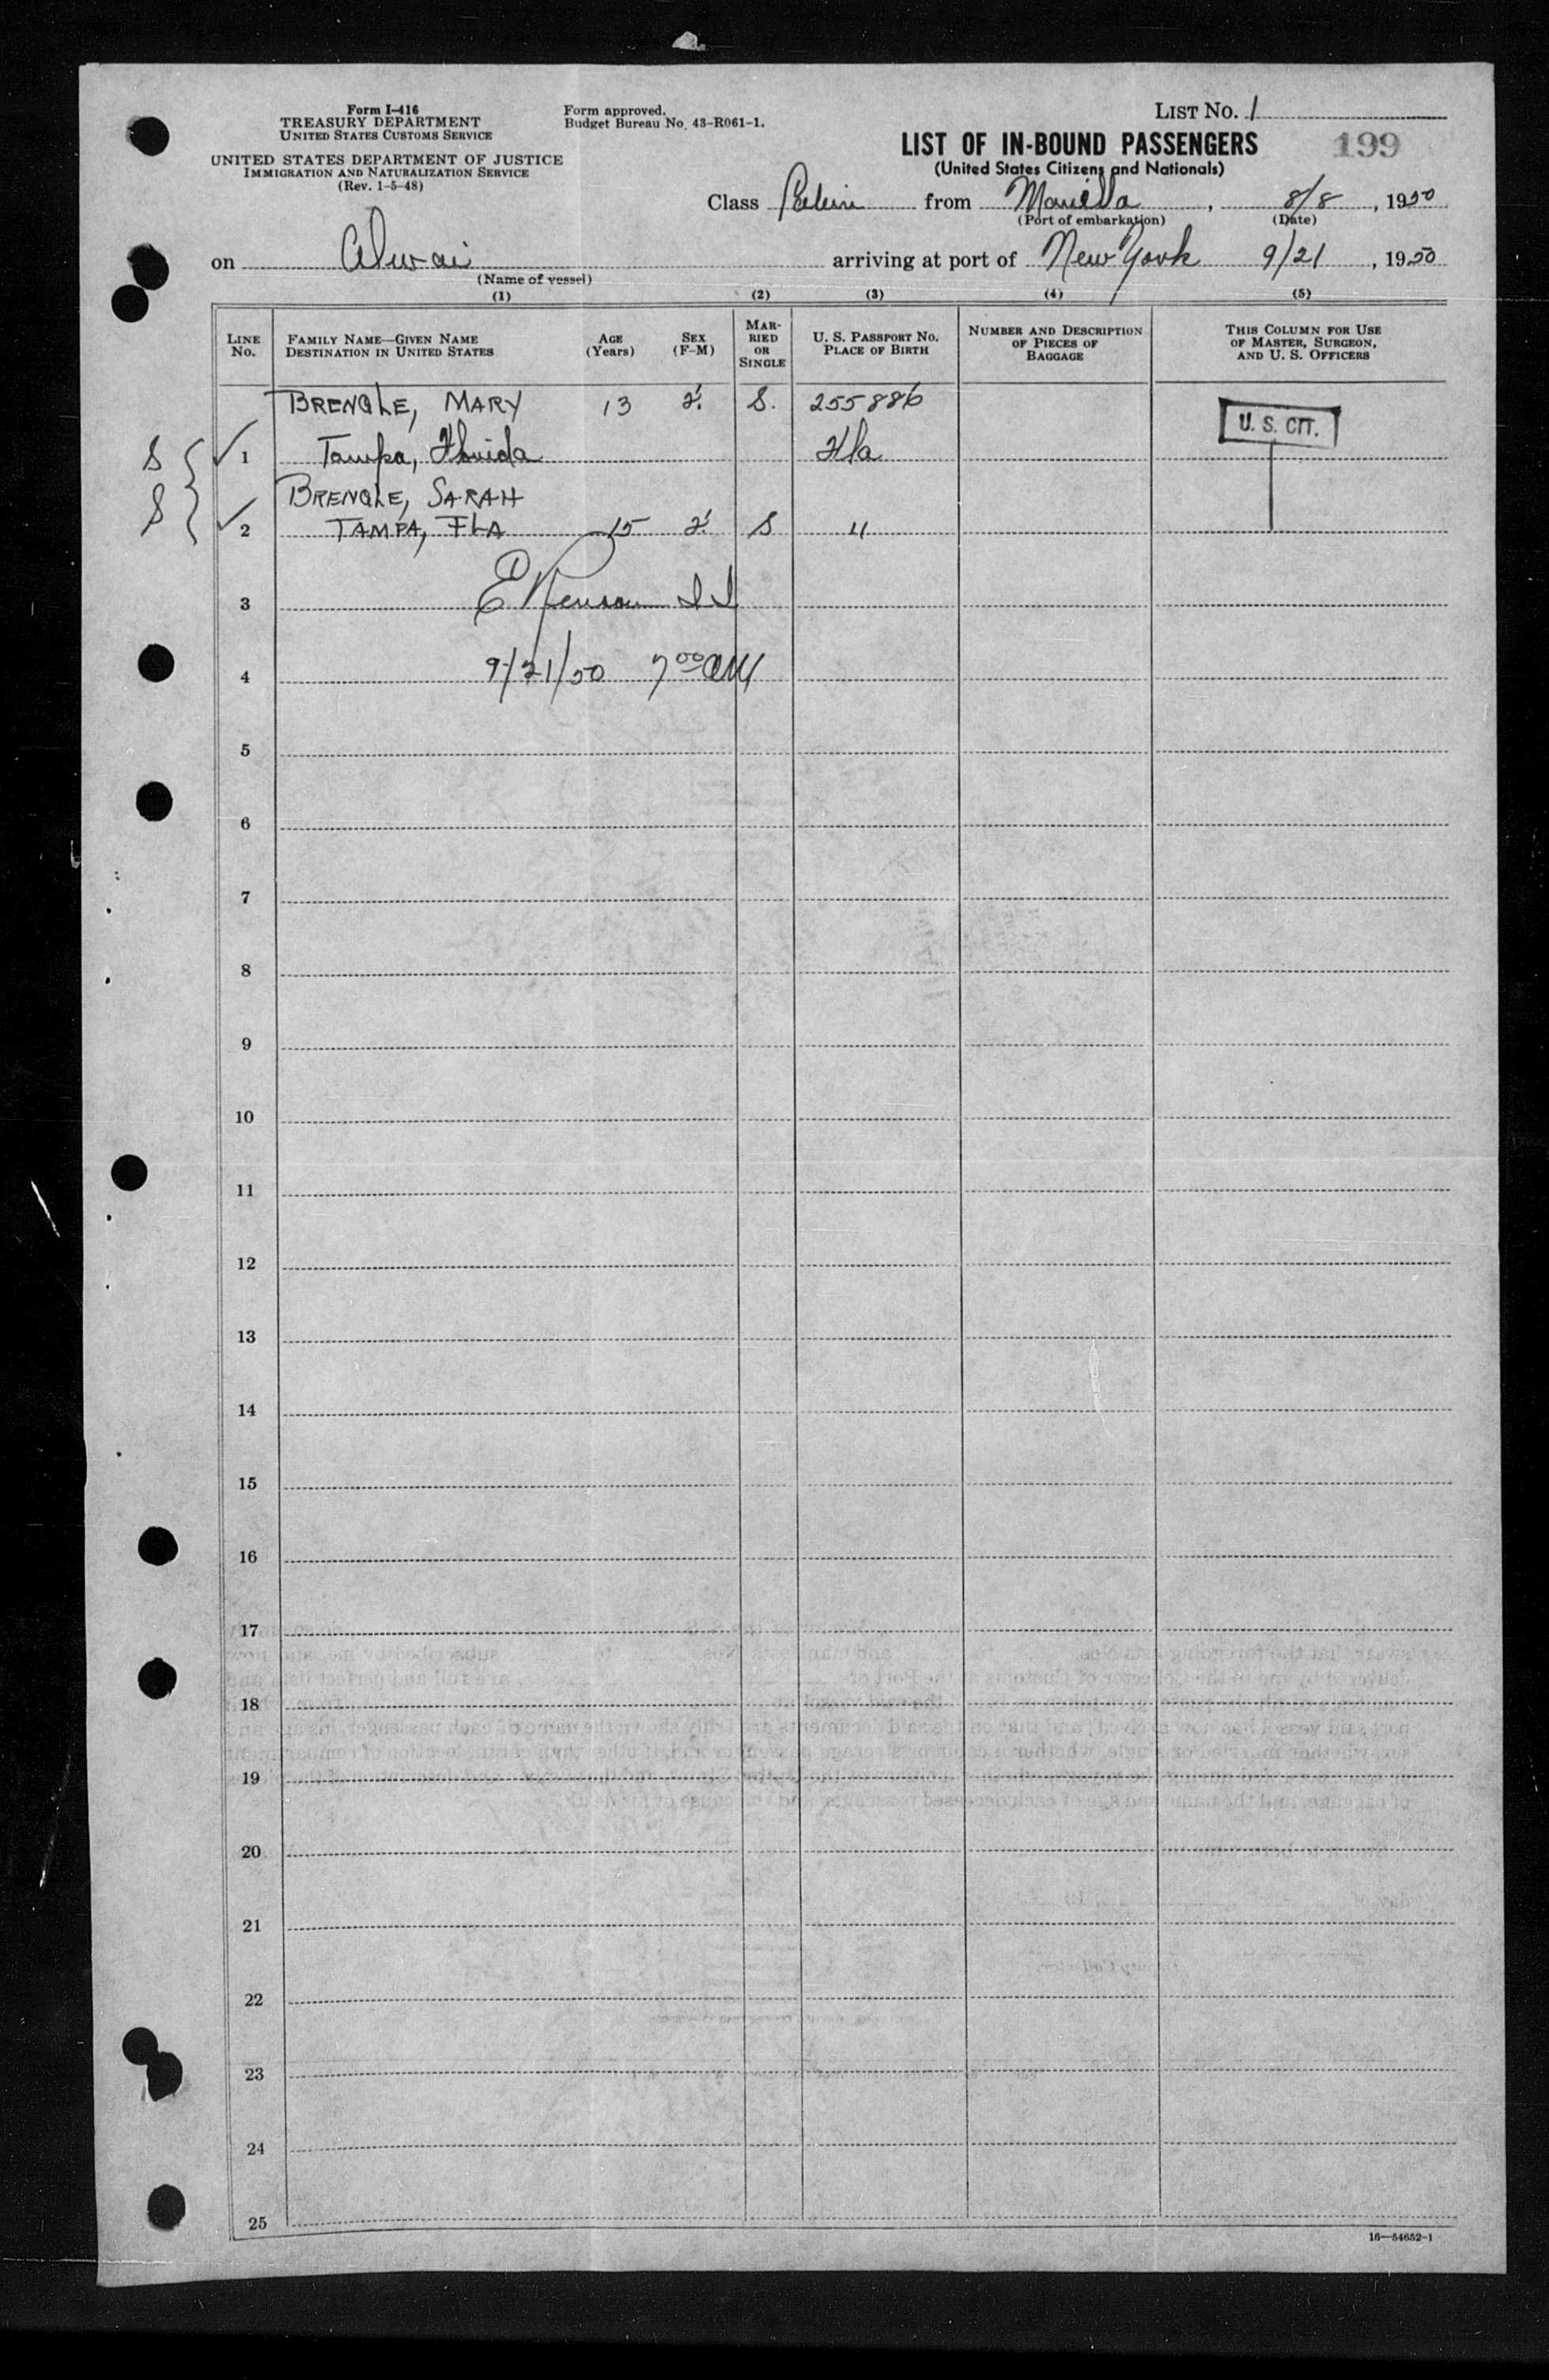 Form I-416
TREASURY DEPARTMENT
UNITED STATES CUSTOMS SERVICE
UNITED STATES DEPARTMENT OF JUSTICE
IMMIGRATION AND NATURALIZATION SERVICE
(Rev. 1-5-48)
Form approved.
Budget Bureau No. 43-R061-1.
LIST No. 1
LIST OF IN-BOUND PASSENGERS
199
(United States Citizens and Nationals)
Class from Manilla, 8/8, 1950
(Port of embarkation) (Date)
on arriving at port of New York 9/21, 1950
(Name of vessel)
(1) (2) (3) (4) (5)
LINE No.
FAMILY NAME—GIVEN NAME
DESTINATION IN UNITED STATES
AGE
(Years)
SEX
(F-M)
MARRIED OR SINGLE
U. S. PASSPORT NO.
PLACE OF BIRTH
NUMBER AND DESCRIPTION
OF PIECES OF
BAGGAGE
THIS COLUMN FOR USE
OF MASTER, SURGEON,
AND U. S. OFFICERS
BRENGLE, MARY 13 F. S. 255886
S ✓ 1 Tampa, Florida Fla U. S. CIT.
BRENGLE, SARAH
S ✓ 2 TAMPA, FLA 15 F. S "
3
4 9/21/50 7 00 AM
5
6
7
8
9
10
11
12
13
14
15
16
17
18
19
20
21
22
23
24
25
16—54652-1